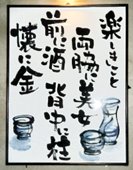 楽しきこと
両脇に美女
前に酒 背中に柱
懐に金